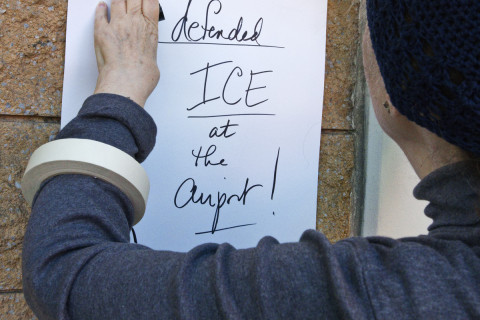 defended
ICE
at
the
airport!